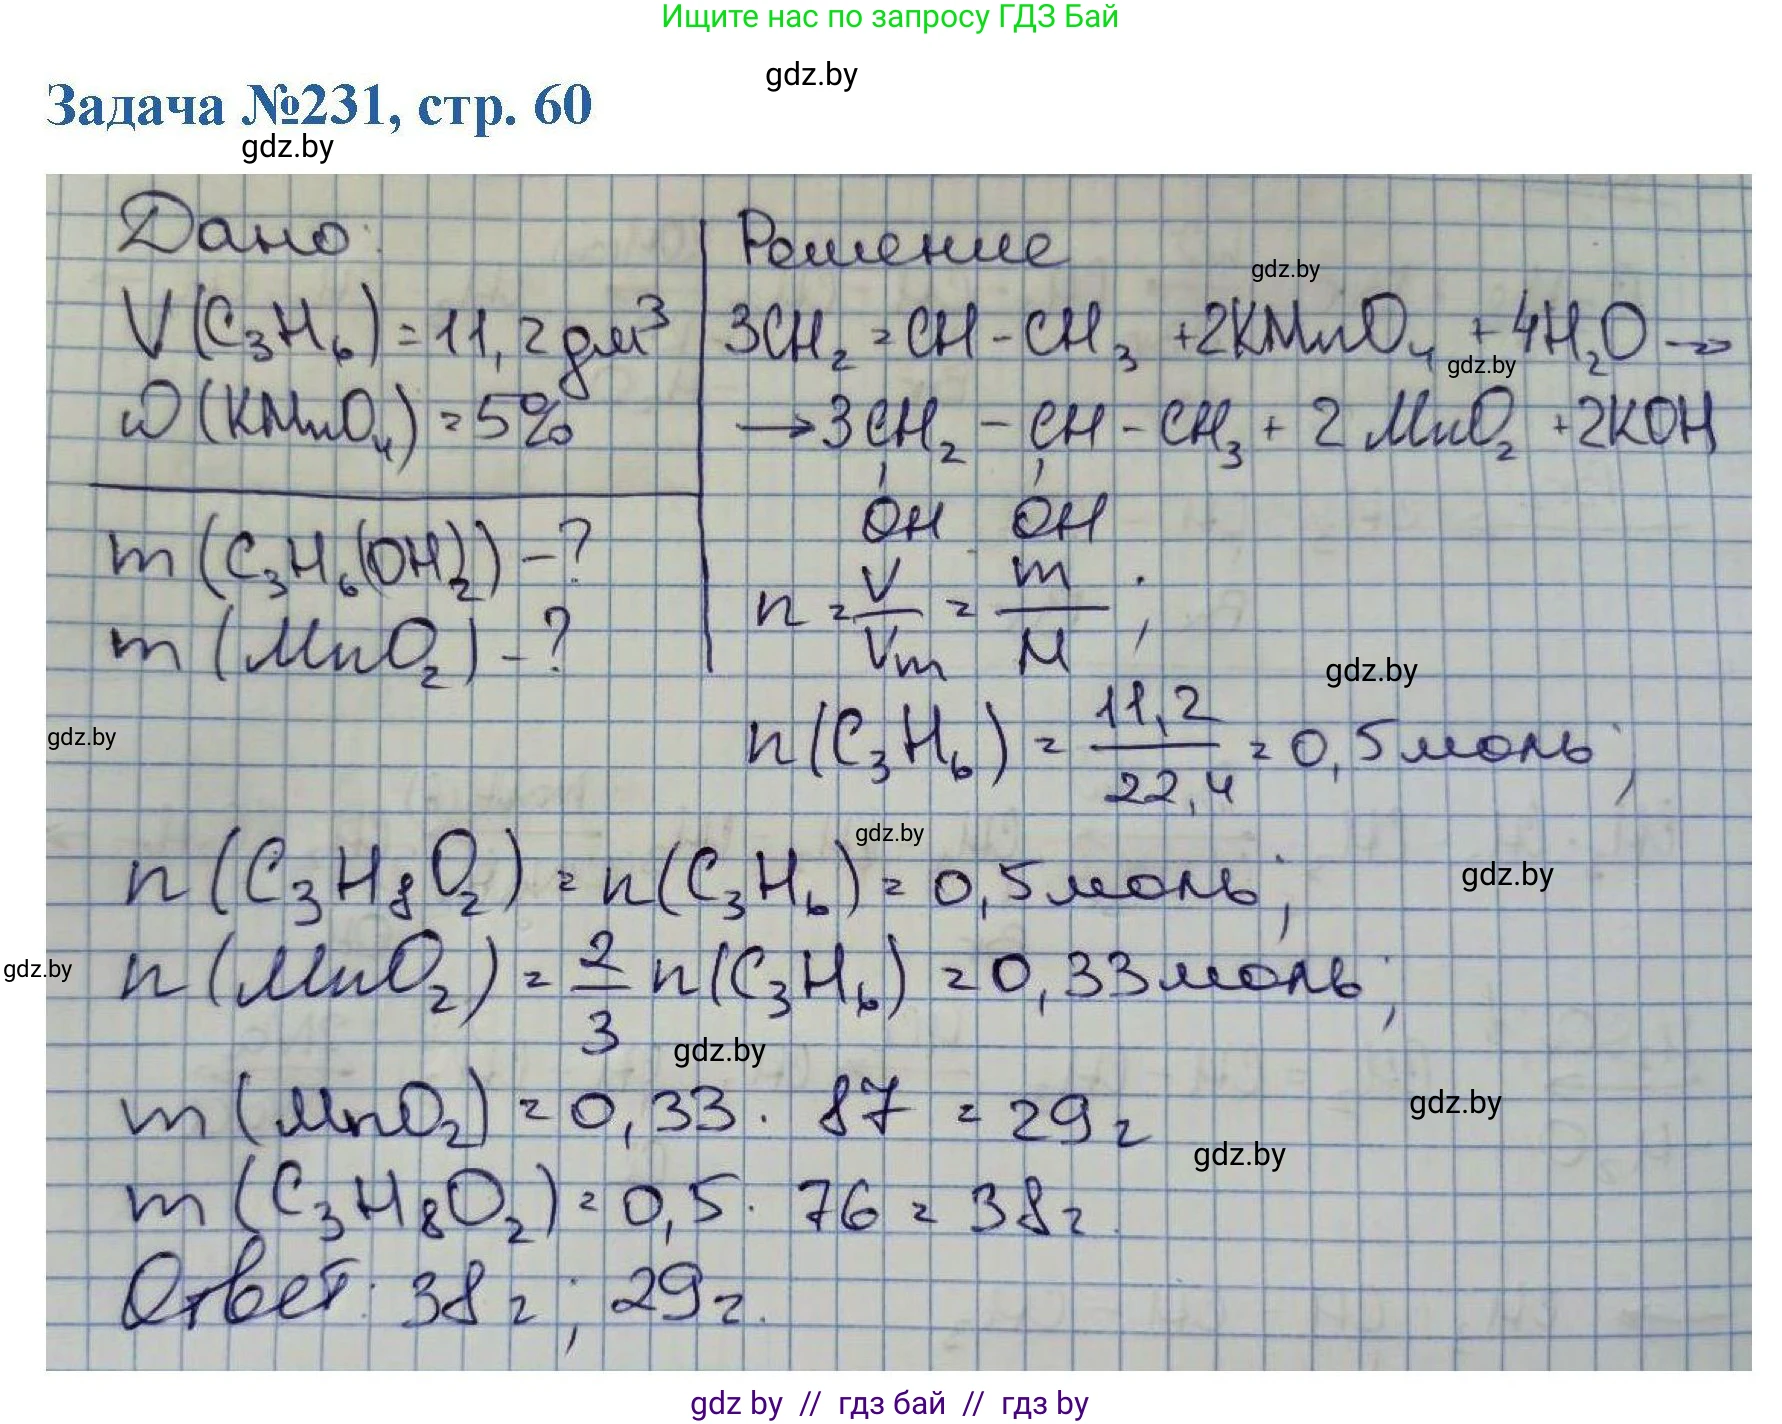 Ищите нас по запросу ГДЗ Бай
gdz.by
Задача №231, стр. 60
gdz.by
Дано:
V(C₃H₆) = 11,2 дм³
ω(KMnO₄) = 5%
m(C₃H₆(OH)₂) - ?
m(MnO₂) - ?
gdz.by
Решение
gdz.by
3CH₂ = CH - CH₃ + 2KMnO₄ + 4H₂O →
gdz.by
→ 3CH₂ - CH - CH₃ + 2MnO₂ + 2KOH
OH OH
n = V/Vm = m/M;
gdz.by
n(C₃H₆) = 11,2/22,4 = 0,5 моль;
gdz.by
n(C₃H₈O₂) = n(C₃H₆) = 0,5 моль;
gdz.by
gdz.by
n(MnO₂) = 2/3 n(C₃H₆) = 0,33 моль;
gdz.by
m(MnO₂) = 0,33 · 87 = 29 г
gdz.by
gdz.by
m(C₃H₈O₂) = 0,5 · 76 = 38 г.
Ответ: 38 г; 29 г.
gdz by // гдз бай // гдз by